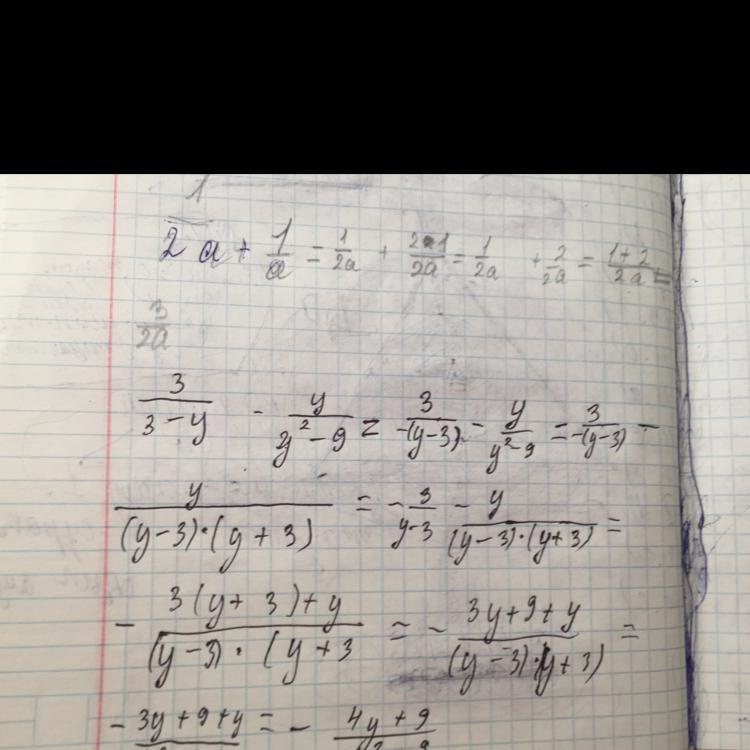 1/2a + 1/a = 1/2a + 2·1/2a = 1/2a + 2/2a = 1+2/2a =
3/2a
3/3-y - y/y²-9 = 3/-(y-3) - y/y²-9 = 3/-(y-3) -
y/(y-3)·(y+3) = -3/y-3 - y/(y-3)·(y+3) =
- 3(y+3)+y/(y-3)·(y+3 = - 3y+9+y/(y-3)·(y+3) =
- 3y+9+y = - 4y+9